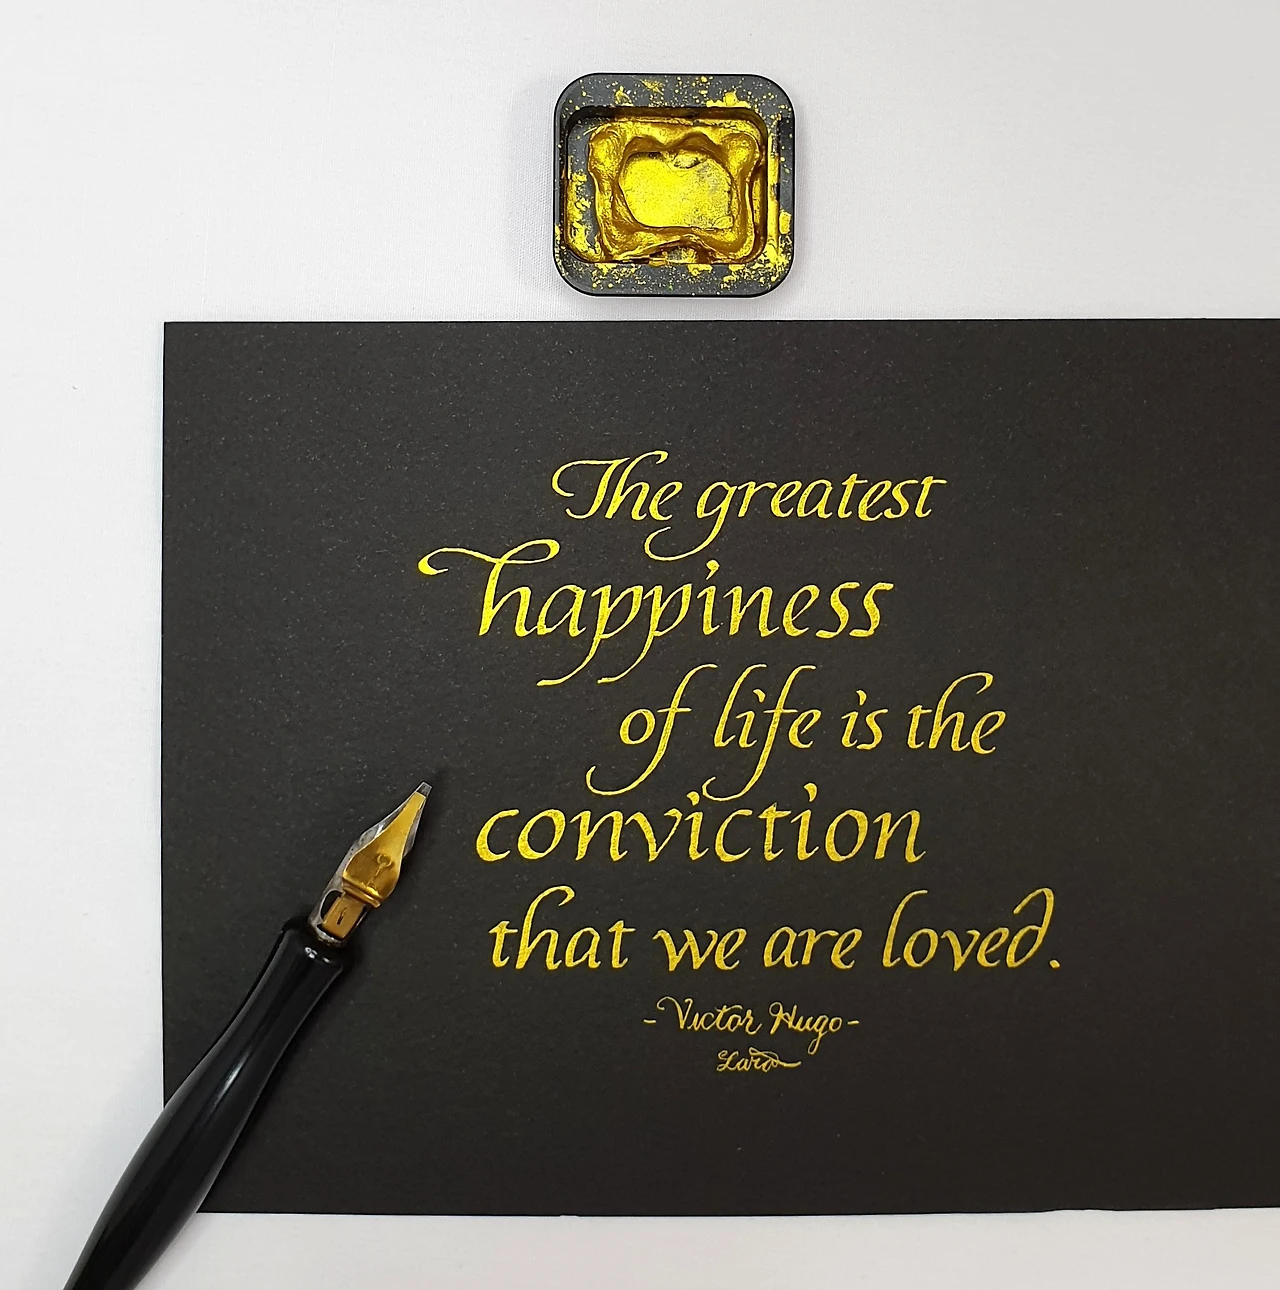 The greatest
happiness
of life is the
conviction
that we are loved.
-Victor Hugo-
Lara